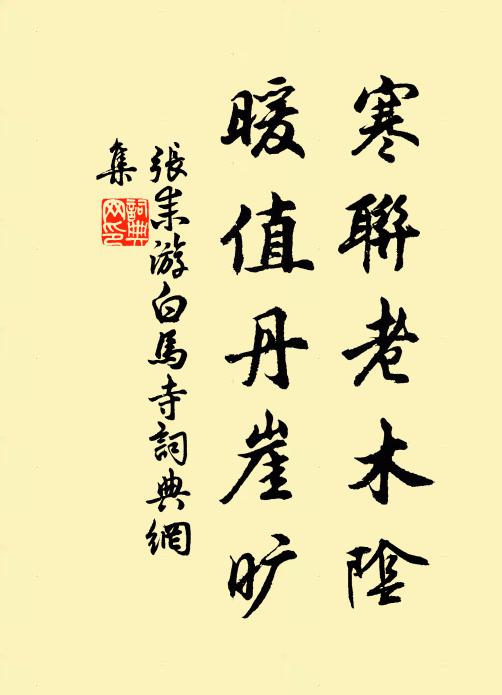 寒聯老木陰
暖值丹崖旷
張耒游白馬寺詞典網
集
詞典
网印